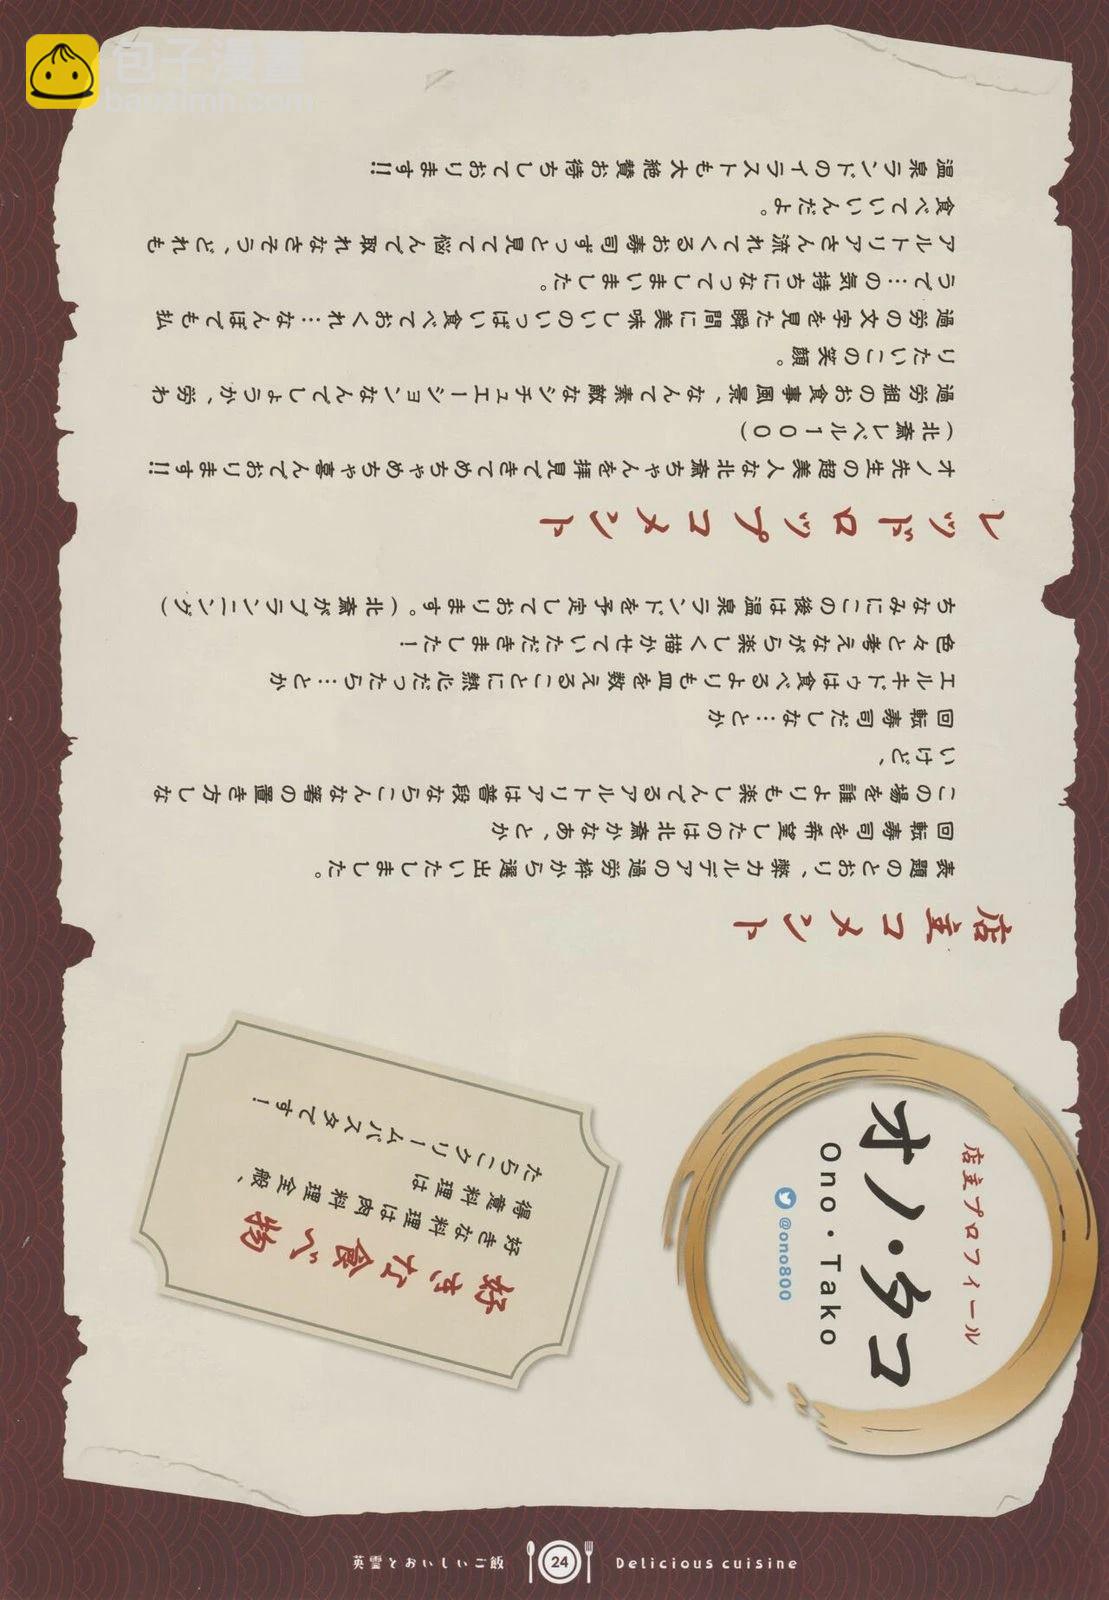 包子漫畫
baozimh.com
店主プロフィール
オノ・タコ
Ono・Tako
@ono800
好きな食べ物
好きな料理は肉料理全般、
得意料理は
たらこクリームパスタです！
店主コメント
表題のとおり、弊カルデアの過労枠から選出いたしました。
回転寿司を希望したのは北斎かなあ、とか
この場を誰よりも楽しんでるアルトリアは普段ならこんな箸の置き方しな
いけど、
回転寿司だしな…とか
エルキドゥは食べるよりも皿を数えることに熱心だったら…とか
色々と考えながら楽しく描かせていただきました！
ちなみにこの後は温泉ランドを予定しております。（北斎がプランニング）
レッドドロップコメント
オノ先生の超美人な北斎ちゃんを拝見できてめちゃめちゃ喜んでおります!!
（北斎レベル１００）
過労組のお食事風景、なんて素敵なシチュエーションなんでしょうか、労わ
りたいこの笑顔。
過労の文字を見た瞬間に美味しいのいっぱい食べておくれ…なんぼでも払
うで…の気持ちになってしまいました。
アルトリアさん流れてくるお寿司ずっと見てて悩んで取れなさそう、どれも
食べていいんだよ。
温泉ランドのイラストも大絶賛お待ちしております!!
英霊とおいしいご飯
24
Delicious cuisine